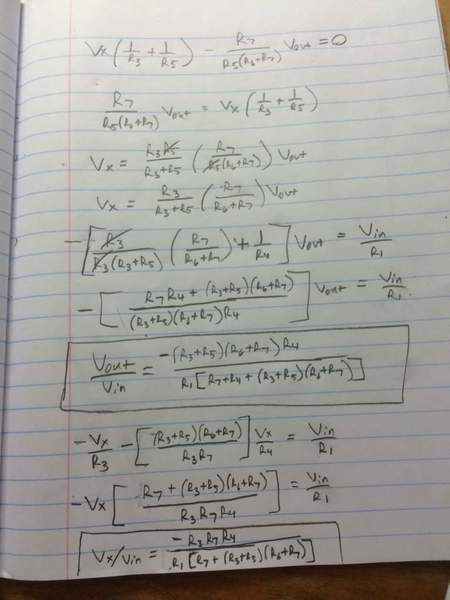 Vx (1/R3 + 1/R5) - R7/(R5(R6+R7)) Vout = 0
R7/(R5(R6+R7)) Vout = Vx (1/R3 + 1/R5)
Vx = R3R5/(R3+R5) (R7/(R5(R6+R7))) Vout
Vx = R3/(R3+R5) (R7/(R6+R7)) Vout
-[R3/(R3(R3+R5)) (R7/(R6+R7)) + 1/R4] Vout = Vin/R1
-[(R7R4 + (R3+R5)(R6+R7))/((R3+R5)(R6+R7)R4)] Vout = Vin/R1
Vout/Vin = -(R3+R5)(R6+R7)R4/(R1[R7R4 + (R3+R5)(R6+R7)])
-Vx/R3 - [(R3+R5)(R6+R7)/(R3R7)] Vx/R4 = Vin/R1
-Vx [(R7 + (R3+R5)(R6+R7))/(R3R7R4)] = Vin/R1
Vx/Vin = -R3R7R4/(R1[R7 + (R3+R5)(R6+R7)])